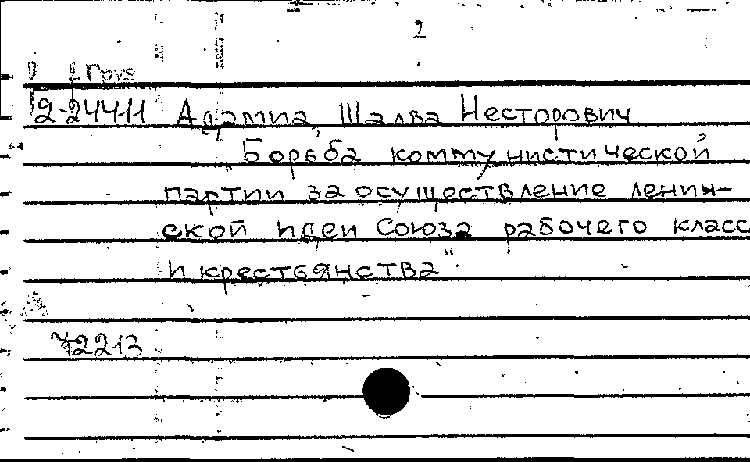 2
Груз
2-24411 Адамиа, Шалва Несторович
„Борьба коммунистической
партии за осуществление ленин-
ской идеи Союза рабочего класс
и крестьянства"
72213